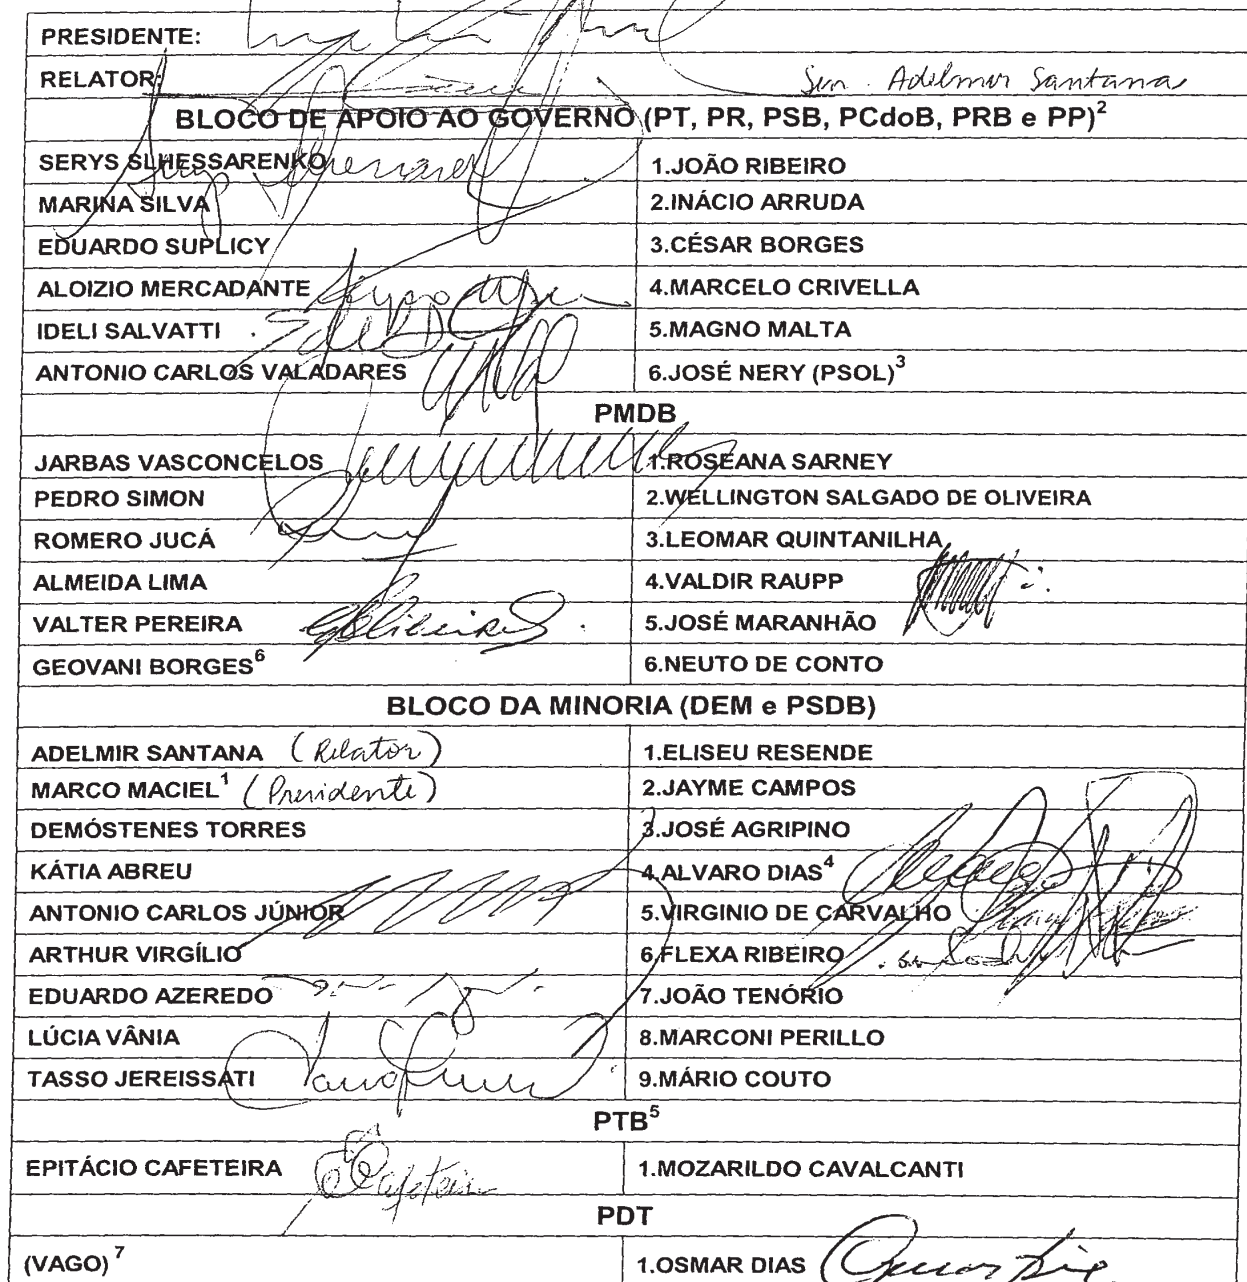 PRESIDENTE:
RELATOR: Sen. Adelmir Santana
BLOCO DE APOIO AO GOVERNO (PT, PR, PSB, PCdoB, PRB e PP)²
SERYS SLHESSARENKO 1.JOÃO RIBEIRO
MARINA SILVA 2.INÁCIO ARRUDA
EDUARDO SUPLICY 3.CÉSAR BORGES
ALOIZIO MERCADANTE 4.MARCELO CRIVELLA
IDELI SALVATTI 5.MAGNO MALTA
ANTONIO CARLOS VALADARES 6.JOSÉ NERY (PSOL)³
PMDB
JARBAS VASCONCELOS 1.ROSEANA SARNEY
PEDRO SIMON 2.WELLINGTON SALGADO DE OLIVEIRA
ROMERO JUCÁ 3.LEOMAR QUINTANILHA
ALMEIDA LIMA 4.VALDIR RAUPP
VALTER PEREIRA 5.JOSÉ MARANHÃO
GEOVANI BORGES⁶ 6.NEUTO DE CONTO
BLOCO DA MINORIA (DEM e PSDB)
ADELMIR SANTANA (Relator) 1.ELISEU RESENDE
MARCO MACIEL¹ (Presidente) 2.JAYME CAMPOS
DEMÓSTENES TORRES 3.JOSÉ AGRIPINO
KÁTIA ABREU 4.ALVARO DIAS⁴
ANTONIO CARLOS JÚNIOR 5.VIRGINIO DE CARVALHO
ARTHUR VIRGÍLIO 6.FLEXA RIBEIRO
EDUARDO AZEREDO 7.JOÃO TENÓRIO
LÚCIA VÂNIA 8.MARCONI PERILLO
TASSO JEREISSATI 9.MÁRIO COUTO
PTB⁵
EPITÁCIO CAFETEIRA 1.MOZARILDO CAVALCANTI
PDT
(VAGO)⁷ 1.OSMAR DIAS Osmar Dias